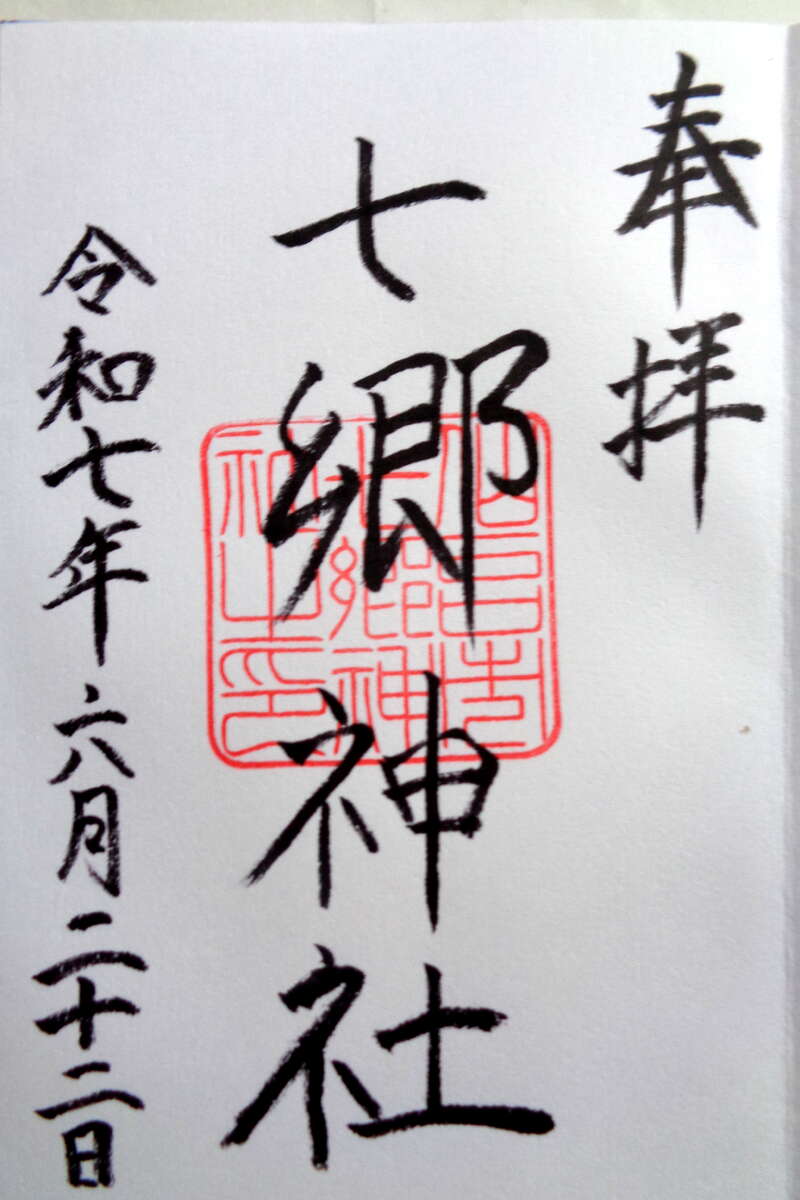 奉拝
七郷神社
令和七年六月二十二日